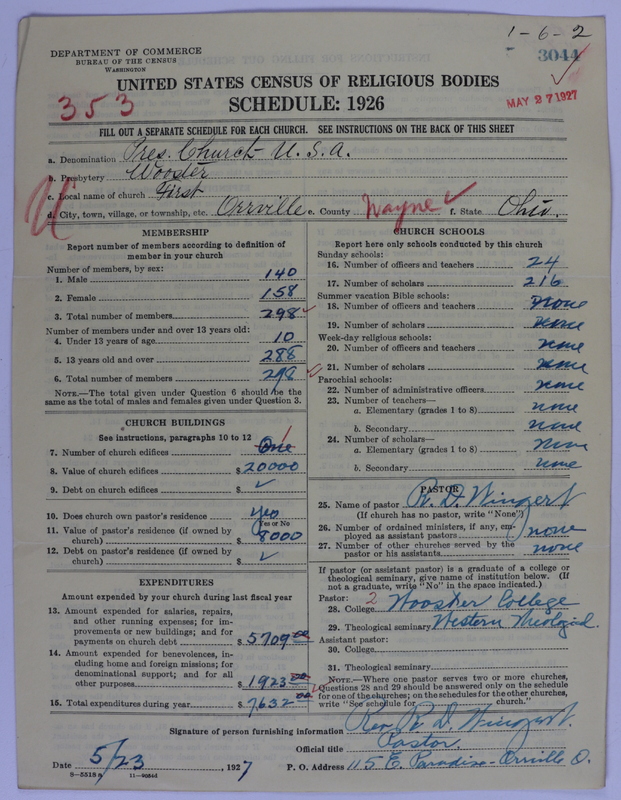 1-6-2
DEPARTMENT OF COMMERCE
BUREAU OF THE CENSUS
WASHINGTON
3044
UNITED STATES CENSUS OF RELIGIOUS BODIES
353
SCHEDULE: 1926
MAY 27 1927
FILL OUT A SEPARATE SCHEDULE FOR EACH CHURCH. SEE INSTRUCTIONS ON THE BACK OF THIS SHEET
a. Denomination Pres. Church U.S.A.
b. Presbytery Wooster
c. Local name of church First
d. City, town, village, or township, etc. Orrville e. County Wayne f. State Ohio.
MEMBERSHIP
Report number of members according to definition of
member in your church
Number of members, by sex:
1. Male 140
2. Female 158
3. Total number of members 298
Number of members under and over 13 years old:
4. Under 13 years of age 10
5. 13 years old and over 288
6. Total number of members 298
NOTE.—The total given under Question 6 should be the
same as the total of males and females given under Question 3.
CHURCH BUILDINGS
See instructions, paragraphs 10 to 12
7. Number of church edifices One 1
8. Value of church edifices $ 20000
9. Debt on church edifices $ ✓
10. Does church own pastor's residence yes
Yes or No
11. Value of pastor's residence (if owned by
church) $ 8000
12. Debt on pastor's residence (if owned by
church) $ ✓
EXPENDITURES
Amount expended by your church during last fiscal year
13. Amount expended for salaries, repairs,
and other running expenses; for im-
provements or new buildings; and for
payments on church debt $ 5709 00
14. Amount expended for benevolences, in-
cluding home and foreign missions; for
denominational support; and for all
other purposes $ 1923 00
15. Total expenditures during year $ 7632 00
CHURCH SCHOOLS
Report here only schools conducted by this church
Sunday schools:
16. Number of officers and teachers 24
17. Number of scholars 216
Summer vacation Bible schools:
18. Number of officers and teachers none
19. Number of scholars none
Week-day religious schools:
20. Number of officers and teachers none
21. Number of scholars none
Parochial schools:
22. Number of administrative officers none
23. Number of teachers—
a. Elementary (grades 1 to 8) none
b. Secondary none
24. Number of scholars—
a. Elementary (grades 1 to 8) none
b. Secondary none
PASTOR
25. Name of pastor R. D. Wingert
(If church has no pastor, write "None")
26. Number of ordained ministers, if any, em-
ployed as assistant pastors none
27. Number of other churches served by the
pastor or his assistants none
If pastor (or assistant pastor) is a graduate of a college or
theological seminary, give name of institution below. (If
not a graduate, write "No" in the space indicated.)
Pastor: 2
28. College Wooster College
29. Theological seminary Western Theological.
Assistant pastor:
30. College
31. Theological seminary
NOTE.—Where one pastor serves two or more churches,
Questions 28 and 29 should be answered only on the schedule
for one of the churches; on the schedules for the other churches,
write "See schedule for church."
Signature of person furnishing information Rev. R. D. Wingert.
Official title Pastor.
Date 5/23, 1927 P. O. Address 115 E. Paradise - Orrville O.
8—5518a 11—9084d